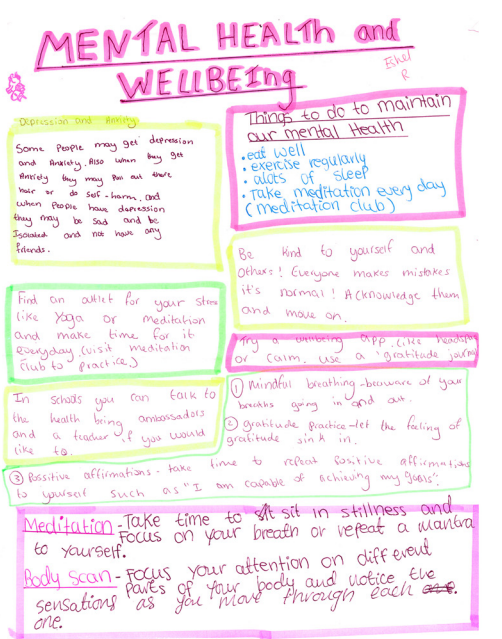 MENTAL HEALTH and
WELLBEIng
Eshel
R
Depression and Anxiety
Some People may get depression
and Anxiety. Also when they get
Anxiety they may Pull out there
hair or do self-harm. and
when People have depression
they may be sad and be
Isolated and not have any
friends.
Things to do to maintain
our mental Health
• eat well
• exercise regularly
• alots of sleep
• Take meditation every day
(meditation club)
Be kind to yourself and
others! Everyone makes mistakes
it's normal! Acknowledge them
and move on.
Find an outlet for your stress
like Yoga or meditation
and make time for it
everyday (visit meditation
club to practice.)
Try a wellbeing app, like headspace
or calm. use a 'gratitude journal
In schools you can talk to
the health being ambassadors
and a teacher if you would
like to.
① Mindful breathing-beware of your
breaths going in and out.
② gratitude practice-let the feeling of
gratitude sink in.
③ Possitive affirmations - take time to repeat Positive affirmations
to yourself such as "I am capable of achieving my goals".
Meditation - Take time to sit in stillness and
Focus on your breath or repeat a mantra
to yourself.
Body Scan - Focus your attention on different
parts of your body and notice the
sensations as you move through each
one.